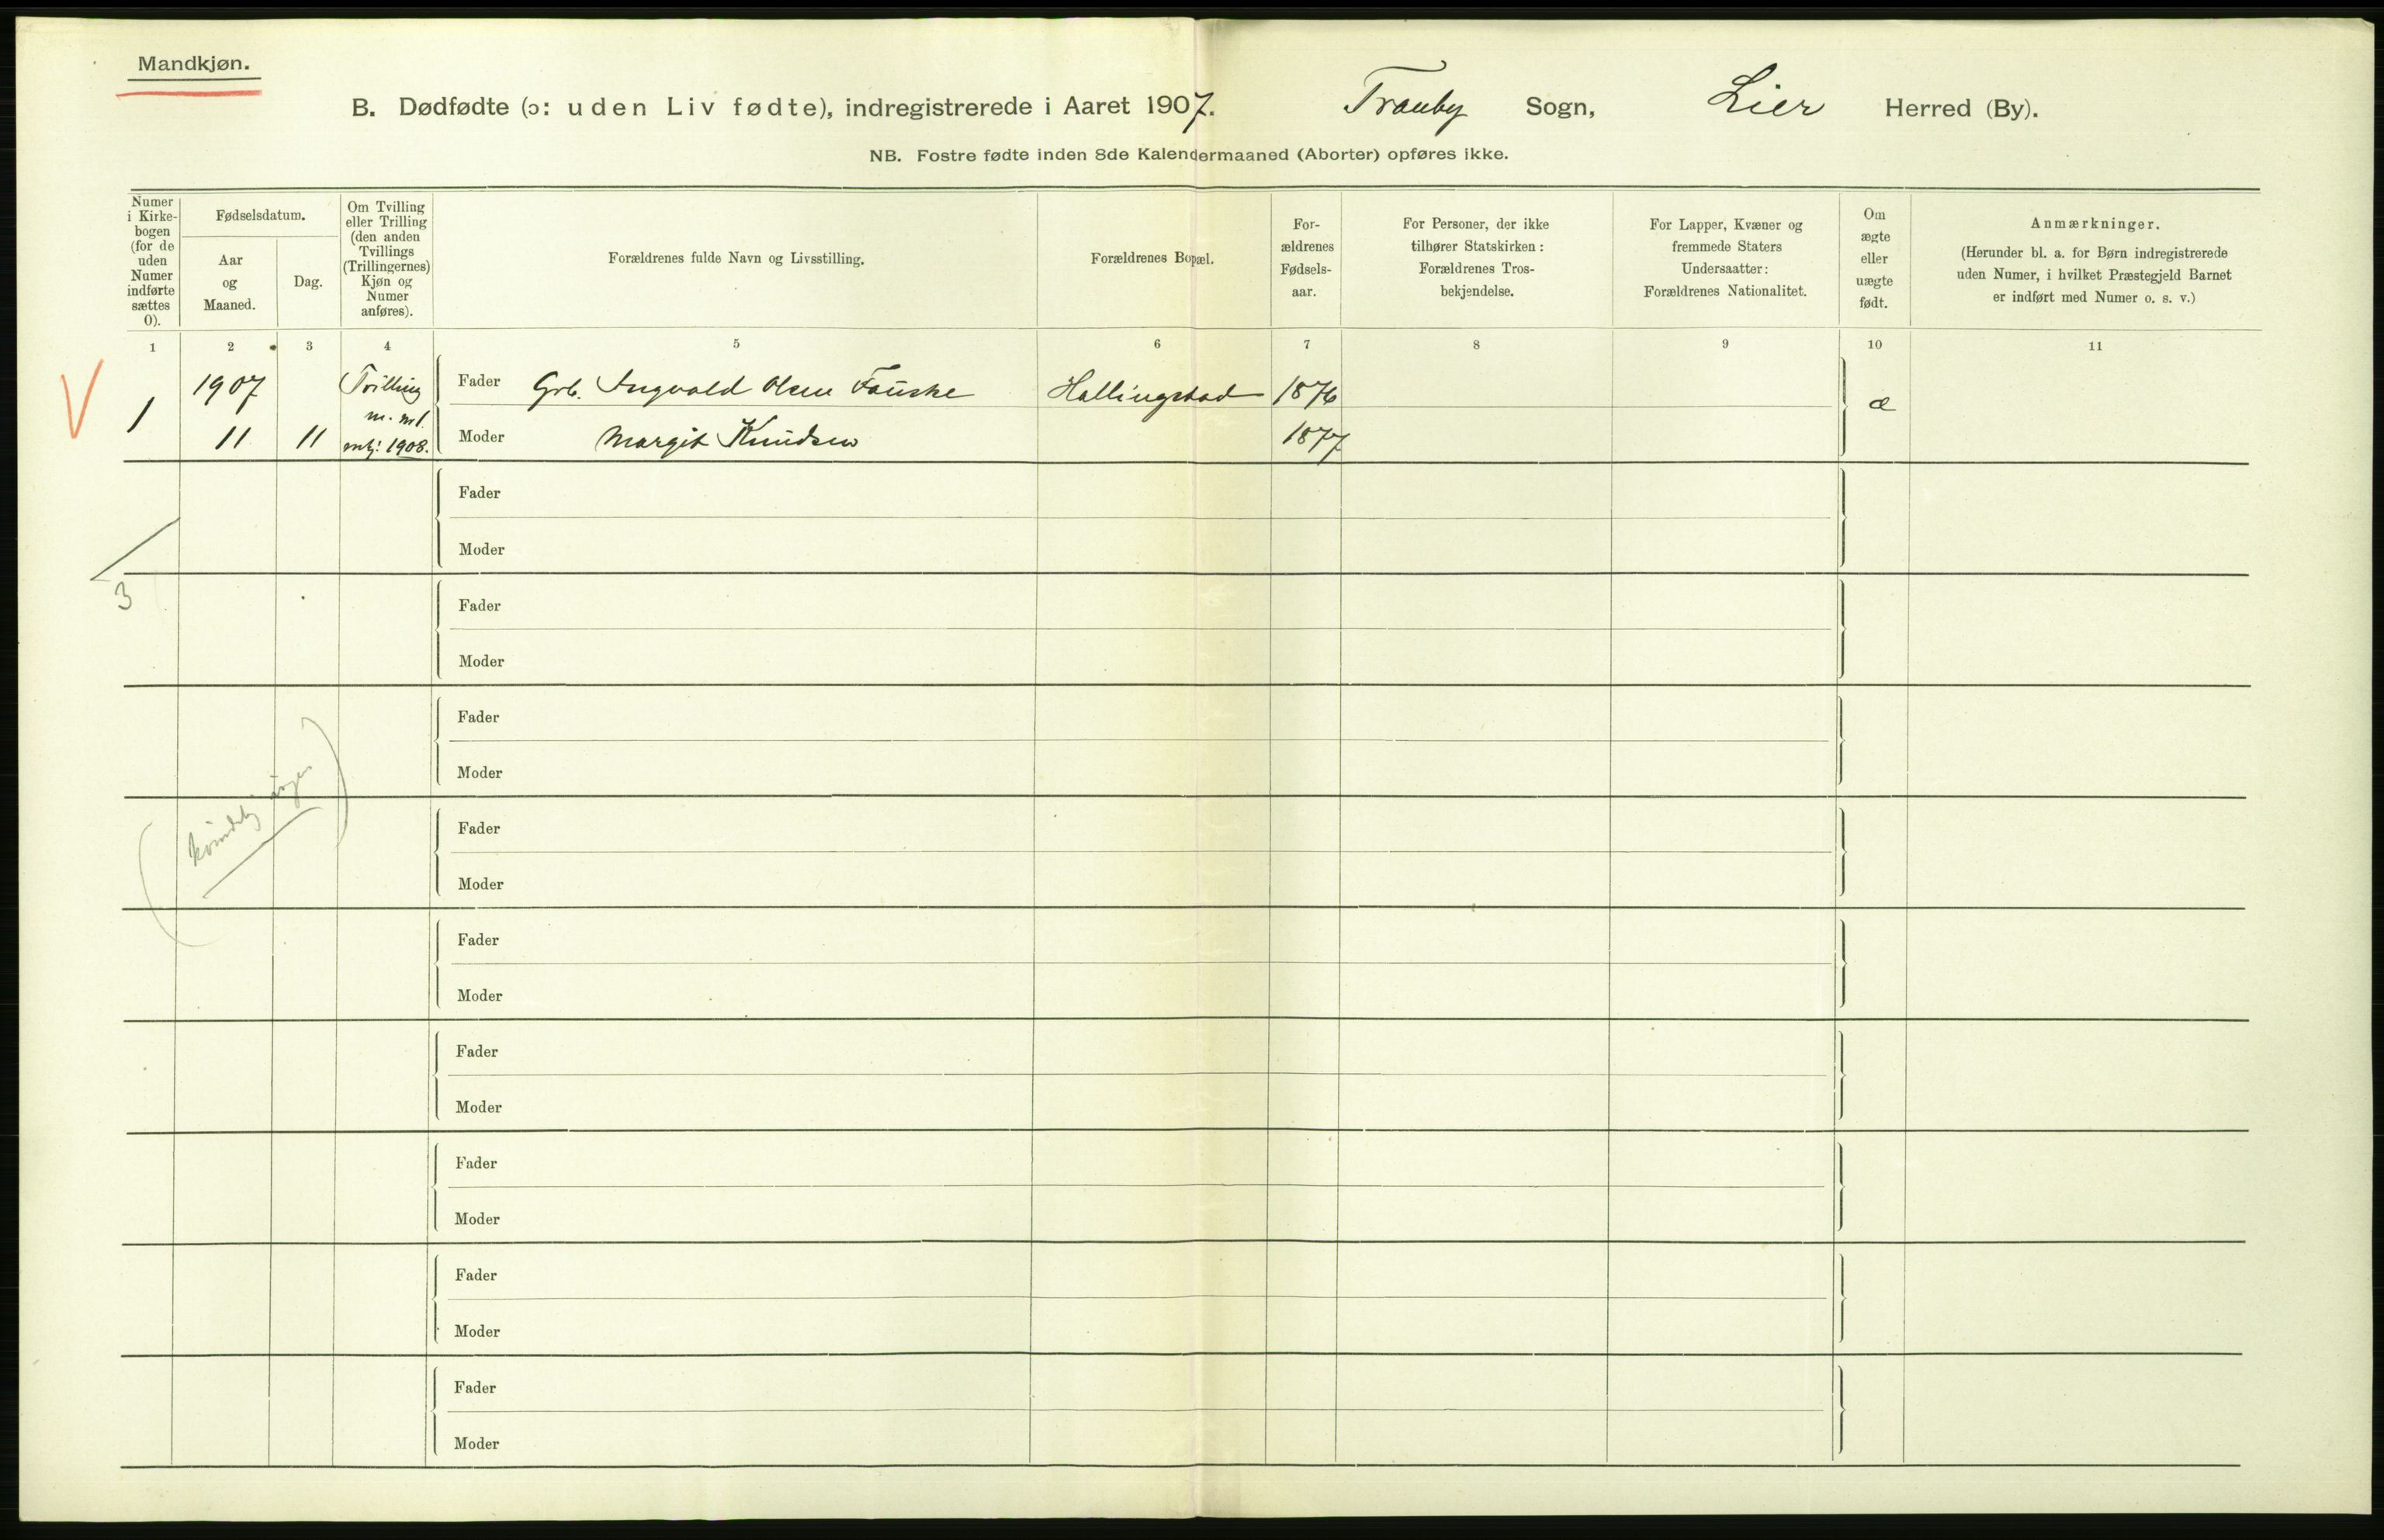 Mandkjøn.
B. Dødfødte (ɔ: uden Liv fødte), indregistrerede i Aaret 1907. Tranby Sogn, Lier Herred (By).
NB. Fostre fødte inden 8de Kalendermaaned (Aborter) opføres ikke.
Numer
i Kirke-
bogen
(for de
uden
Numer
indførte
sættes
0).
Fødselsdatum.
Aar
og
Maaned.
Dag.
Om Tvilling
eller Trilling
(den anden
Tvillings
(Trillingernes)
Kjøn og
Numer
anføres).
Forældrenes fulde Navn og Livsstilling.
Forældrenes Bopæl.
For-
ældrenes
Fødsels-
aar.
For Personer, der ikke
tilhører Statskirken:
Forældrenes Tros-
bekjendelse.
For Lapper, Kvæner og
fremmede Staters
Undersaatter:
Forældrenes Nationalitet.
Om
ægte
eller
uægte
født.
Anmærkninger.
(Herunder bl. a. for Børn indregistrerede
uden Numer, i hvilket Præstegjeld Barnet
er indført med Numer o. s. v.)
1 2 3 4 5 6 7 8 9 10 11
V
1
1907
11 11
Tvilling
m. m1.
1908.
Fader Grb. Ingvald Olsen Fauske Hallingstad 1876 æ
Moder Margit Knudsen 1877
Fader
Moder
3
Fader
Moder
Fader
Moder
Fader
Moder
Fader
Moder
Fader
Moder
Fader
Moder
Fader
Moder
Fader
Moder